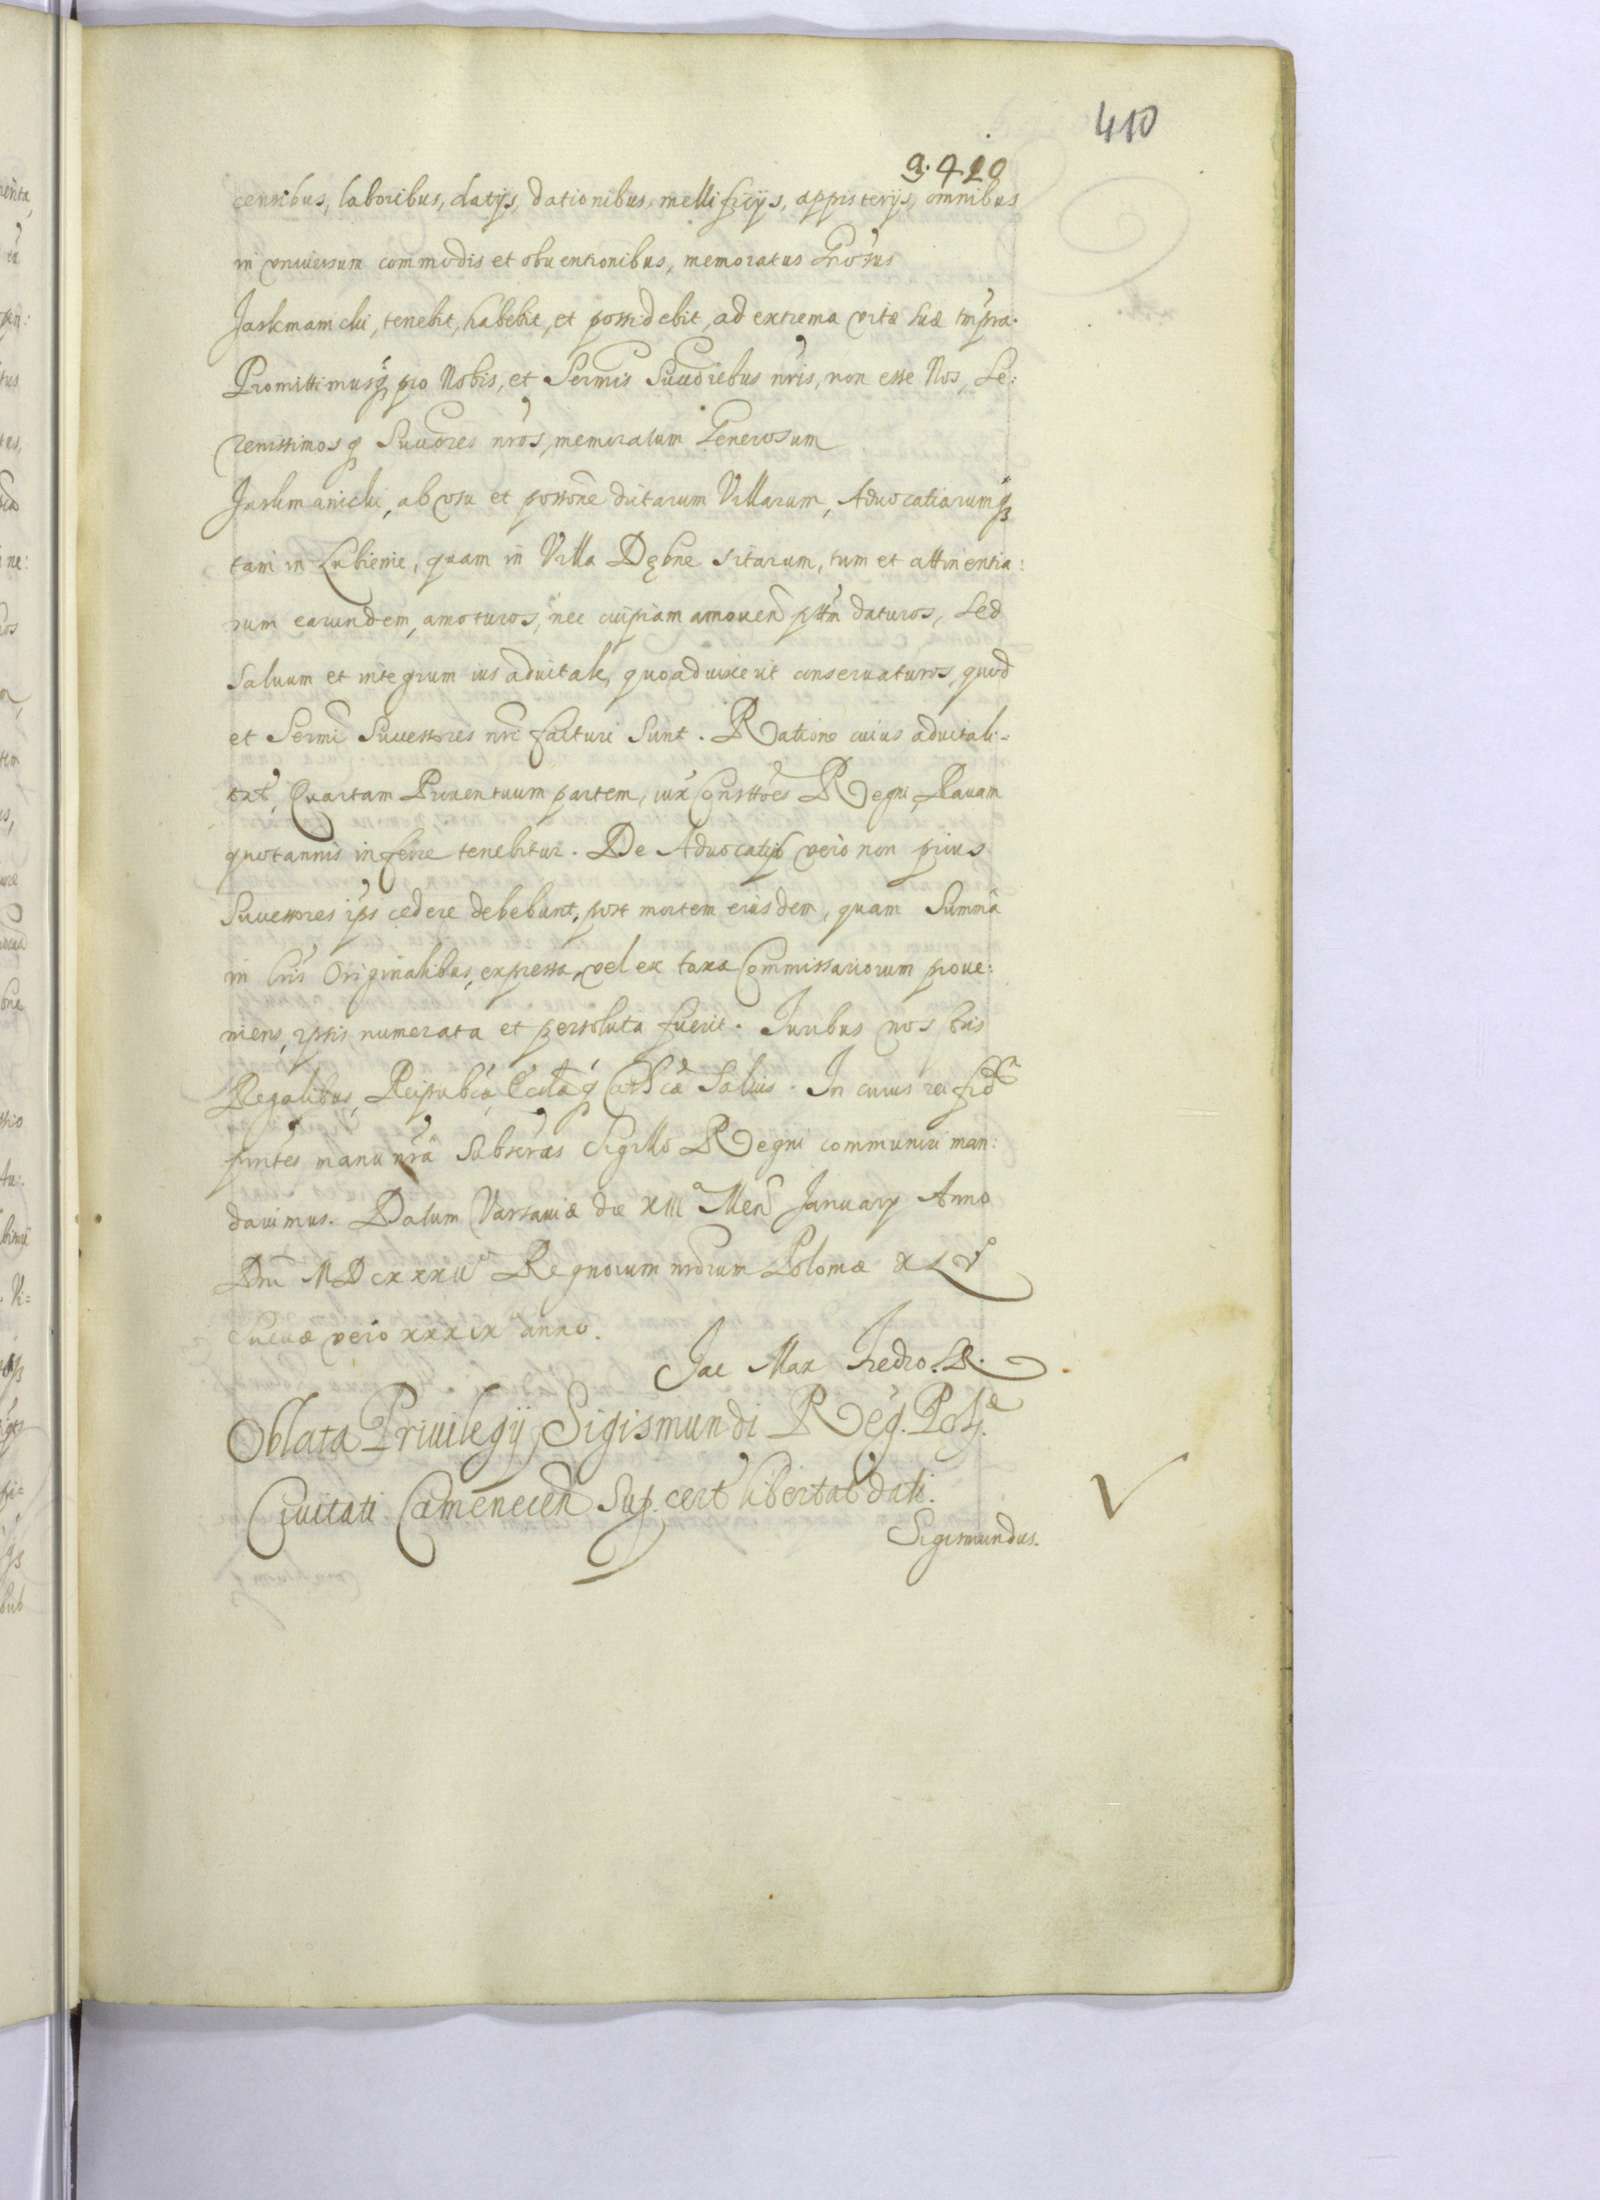 410
9.420
censibus, laboribus, datijs, dationibus, mellificijs, appisterijs, omnibus
in vniuersum commodis et obuentionibus, memoratus Gnosus
Jaskmanicki, tenebit, habebit, et possidebit, ad extrema vitæ suæ tmpra.
Promittimusq pro Nobis, et Sermis Succribus nris, non esse Nos, Se:
renissimosq Succres nros, memoratum Generosum
Jaskmanicki, ab vsu et possone dictarum Villarum, Aduocatiarumq
tam in Lubienie, quam in Villa Dębne sitarum, tum et attinentia:
rum earundem, amoturos, nec cuipiam amouen pttm daturos, sed
saluum et integrum ius aduitale, quoad vixerit conseruaturos, quod
et Sermi Successores nri facturi sunt. Ratione cuius aduitali-
tat, Quartam Prouentuum partem, iux Consttoes Regni, Rauam
quotannis inferre tenebitur. De Aduocatijs vero non prius
Successores ips cedere debebunt, post mortem eiusdem, quam Summa
in Lris Originalibus, expressa, vel ex taxa Commissariorum proue:
niens, ipsis numerata et persoluta fuerit. Juribus nostris
Regalibus, Reipubcæ, Ecclæq Cathcæ Saluis. In cuius rei fid
pntes manu nra Subscras Sigillo Regni communiri man:
dauimus. Datum Varsauiæ die XIII Men January Anno
Dni MDCXXXII Regnorum nrorum Poloniæ XLV
Sueciæ vero XXXIX anno.
Jac Max Fredro.
Oblata Priuilegij Sigismundi Reg. Pol.
Ciuitati Camenecen Sup. cert libertat dati.
Sigismundus.